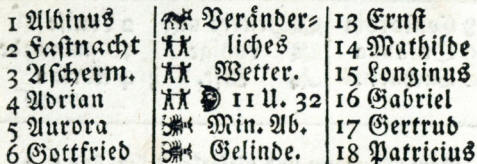 1 Albinus Veränder= 13 Ernst
2 Fastnacht liches 14 Mathilde
3 Ascherm. Wetter. 15 Longinus
4 Adrian 11 U. 32 16 Gabriel
5 Aurora Min. Ab. 17 Gertrud
6 Gottfried Gelinde. 18 Patricius